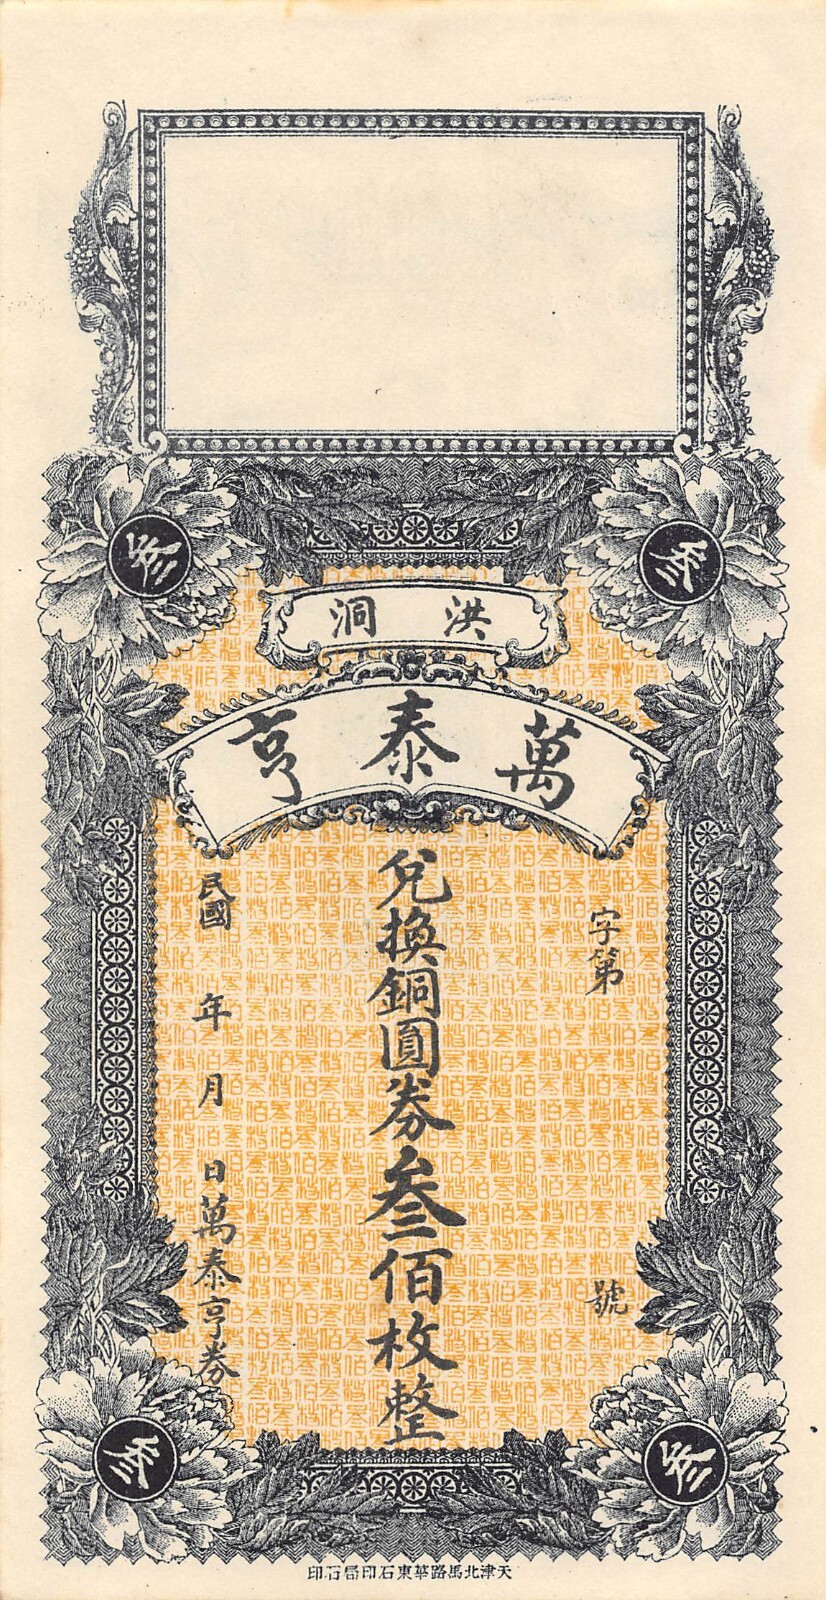 洪洞
萬泰亨
字第 號
兌換銅圓券叁佰枚整
民國 年 月 日萬泰亨券
叁
叁
叁
叁
天津北馬路華東石印局石印